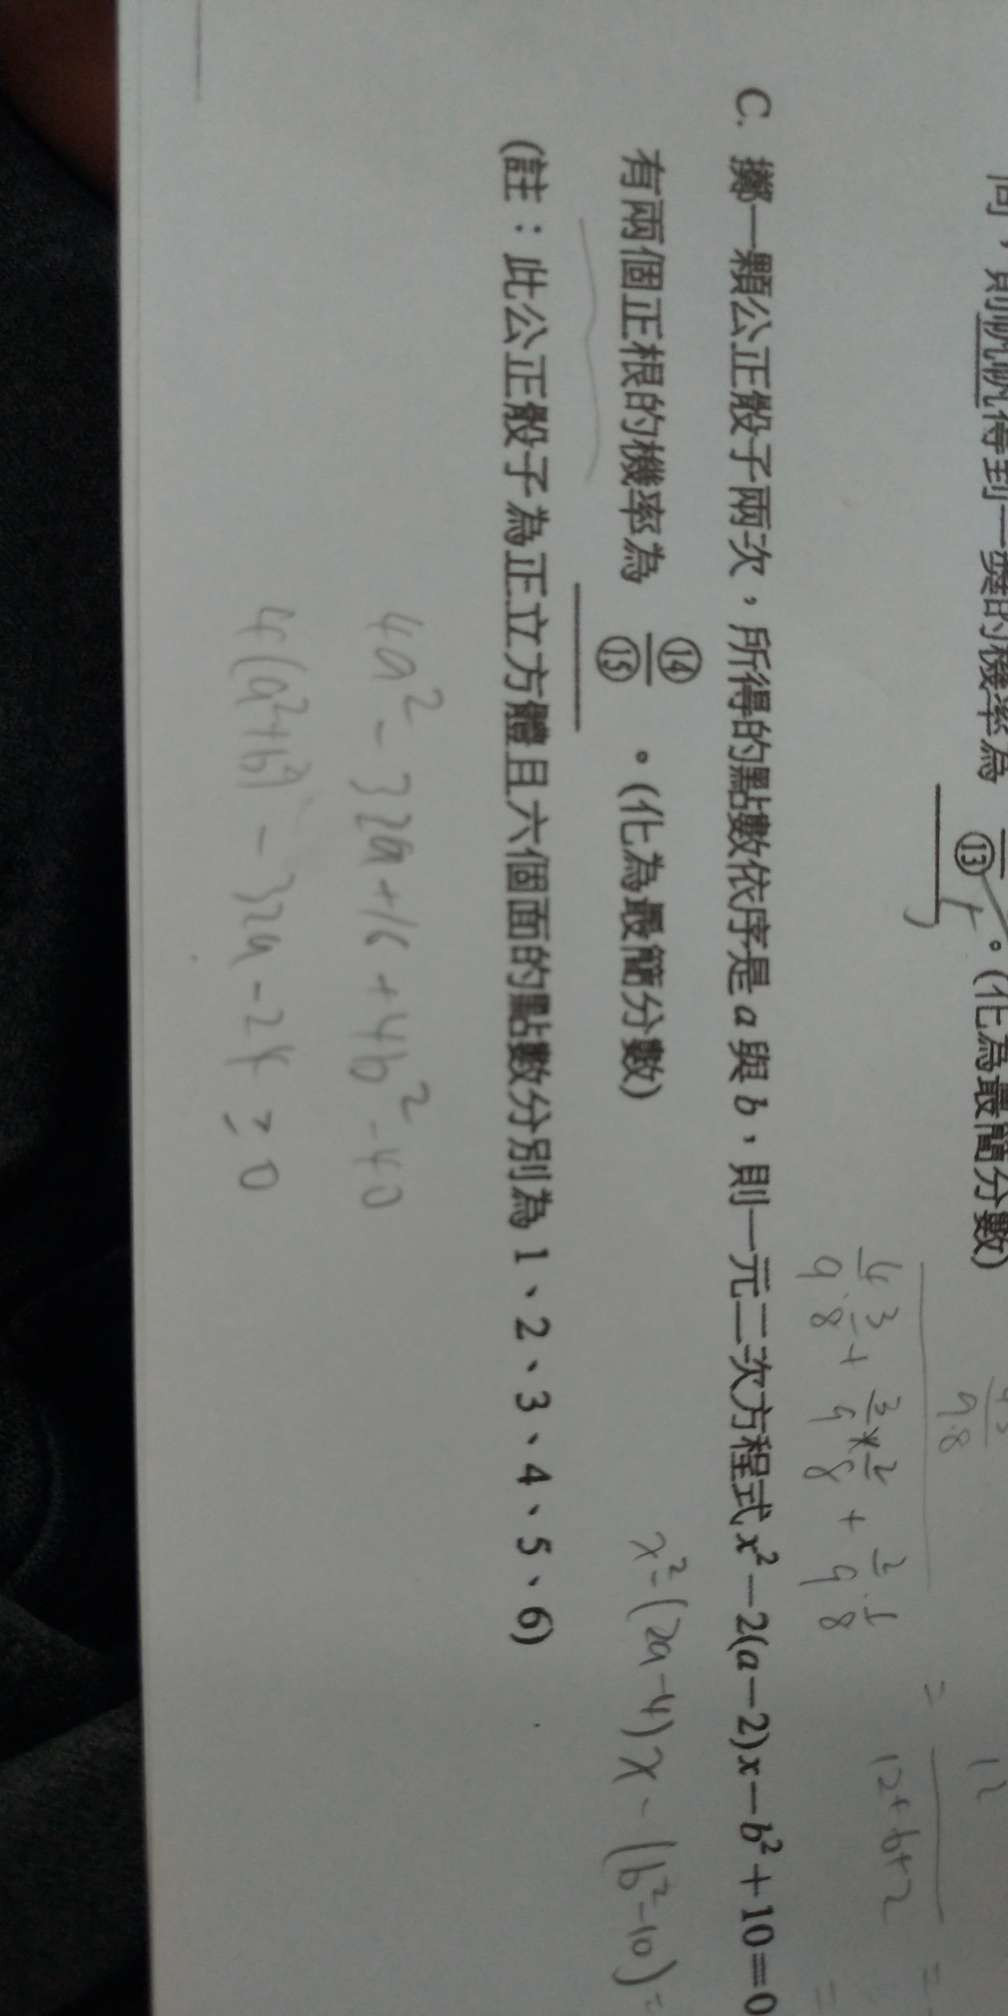 則帆帆得到一獎的機率為 ⑬ 。(化為最簡分數)
4/9 · 3/8 + 3/9 × 2/8 + 2/9 · 1/8 = 12+6+2
C. 擲一顆公正骰子兩次，所得的點數依序是 a 與 b，則一元二次方程式 x² − 2(a − 2)x − b² + 10 = 0
有兩個正根的機率為 ⑭/⑮ 。(化為最簡分數)
x² − (2a − 4)x − (b² − 10) =
(註：此公正骰子為正立方體且六個面的點數分別為 1、2、3、4、5、6)
4a² − 32a + 16 + 4b² − 40
4(a² + b²) − 32a − 24 ≥ 0